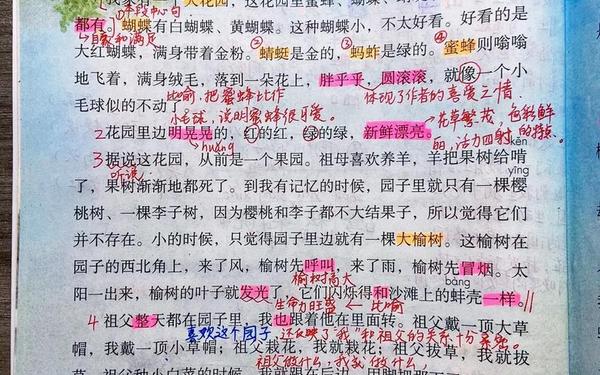 我家有一个大花园，这花园里蜜蜂、蝴蝶、
本段中心句
都有。蝴蝶有白蝴蝶、黄蝴蝶。这种蝴蝶小，不太好看。好看的是
自豪和满足
大红蝴蝶，满身带着金粉。蜻蜓是金的，蚂蚱是绿的。蜜蜂则嗡嗡
② ③ ④
地飞着，满身绒毛，落到一朵花上，胖乎乎，圆滚滚，就像一个小
毛球似的不动了。
比喻，把蜜蜂比作
小毛球，说明蜜蜂很可爱。
体现了作者的喜爱之情
2 花园里边明晃晃的，红的红，绿的绿，新鲜漂亮。
huǎng
花草繁茂，色彩鲜
的，活力四射的特点。
3 据说这花园，从前是一个果园。祖母喜欢养羊，羊把果树给啃
kěn
听说
yīng
了，果树渐渐地都死了。到我有记忆的时候，园子里就只有一棵樱
桃树、一棵李子树，因为樱桃和李子都不大结果子，所以觉得它们
并不存在。小的时候，只觉得园子里边就有一棵大榆树。这榆树在
园子的西北角上，来了风，榆树先呼叫，来了雨，榆树先冒烟。太
榆树高大
bàng
阳一出来，榆树的叶子就发光了，它们闪烁得和沙滩上的蚌壳一样。
生命力旺盛 比喻
4 祖父整天都在园子里，我也跟着他在里面转。祖父戴一顶大草
喜欢这个园子
还反映了“我”和祖父的关系十分亲密。
帽，我戴一顶小草帽；祖父栽花，我就栽花；祖父拔草，我就拔
祖父做什么，我就做什么